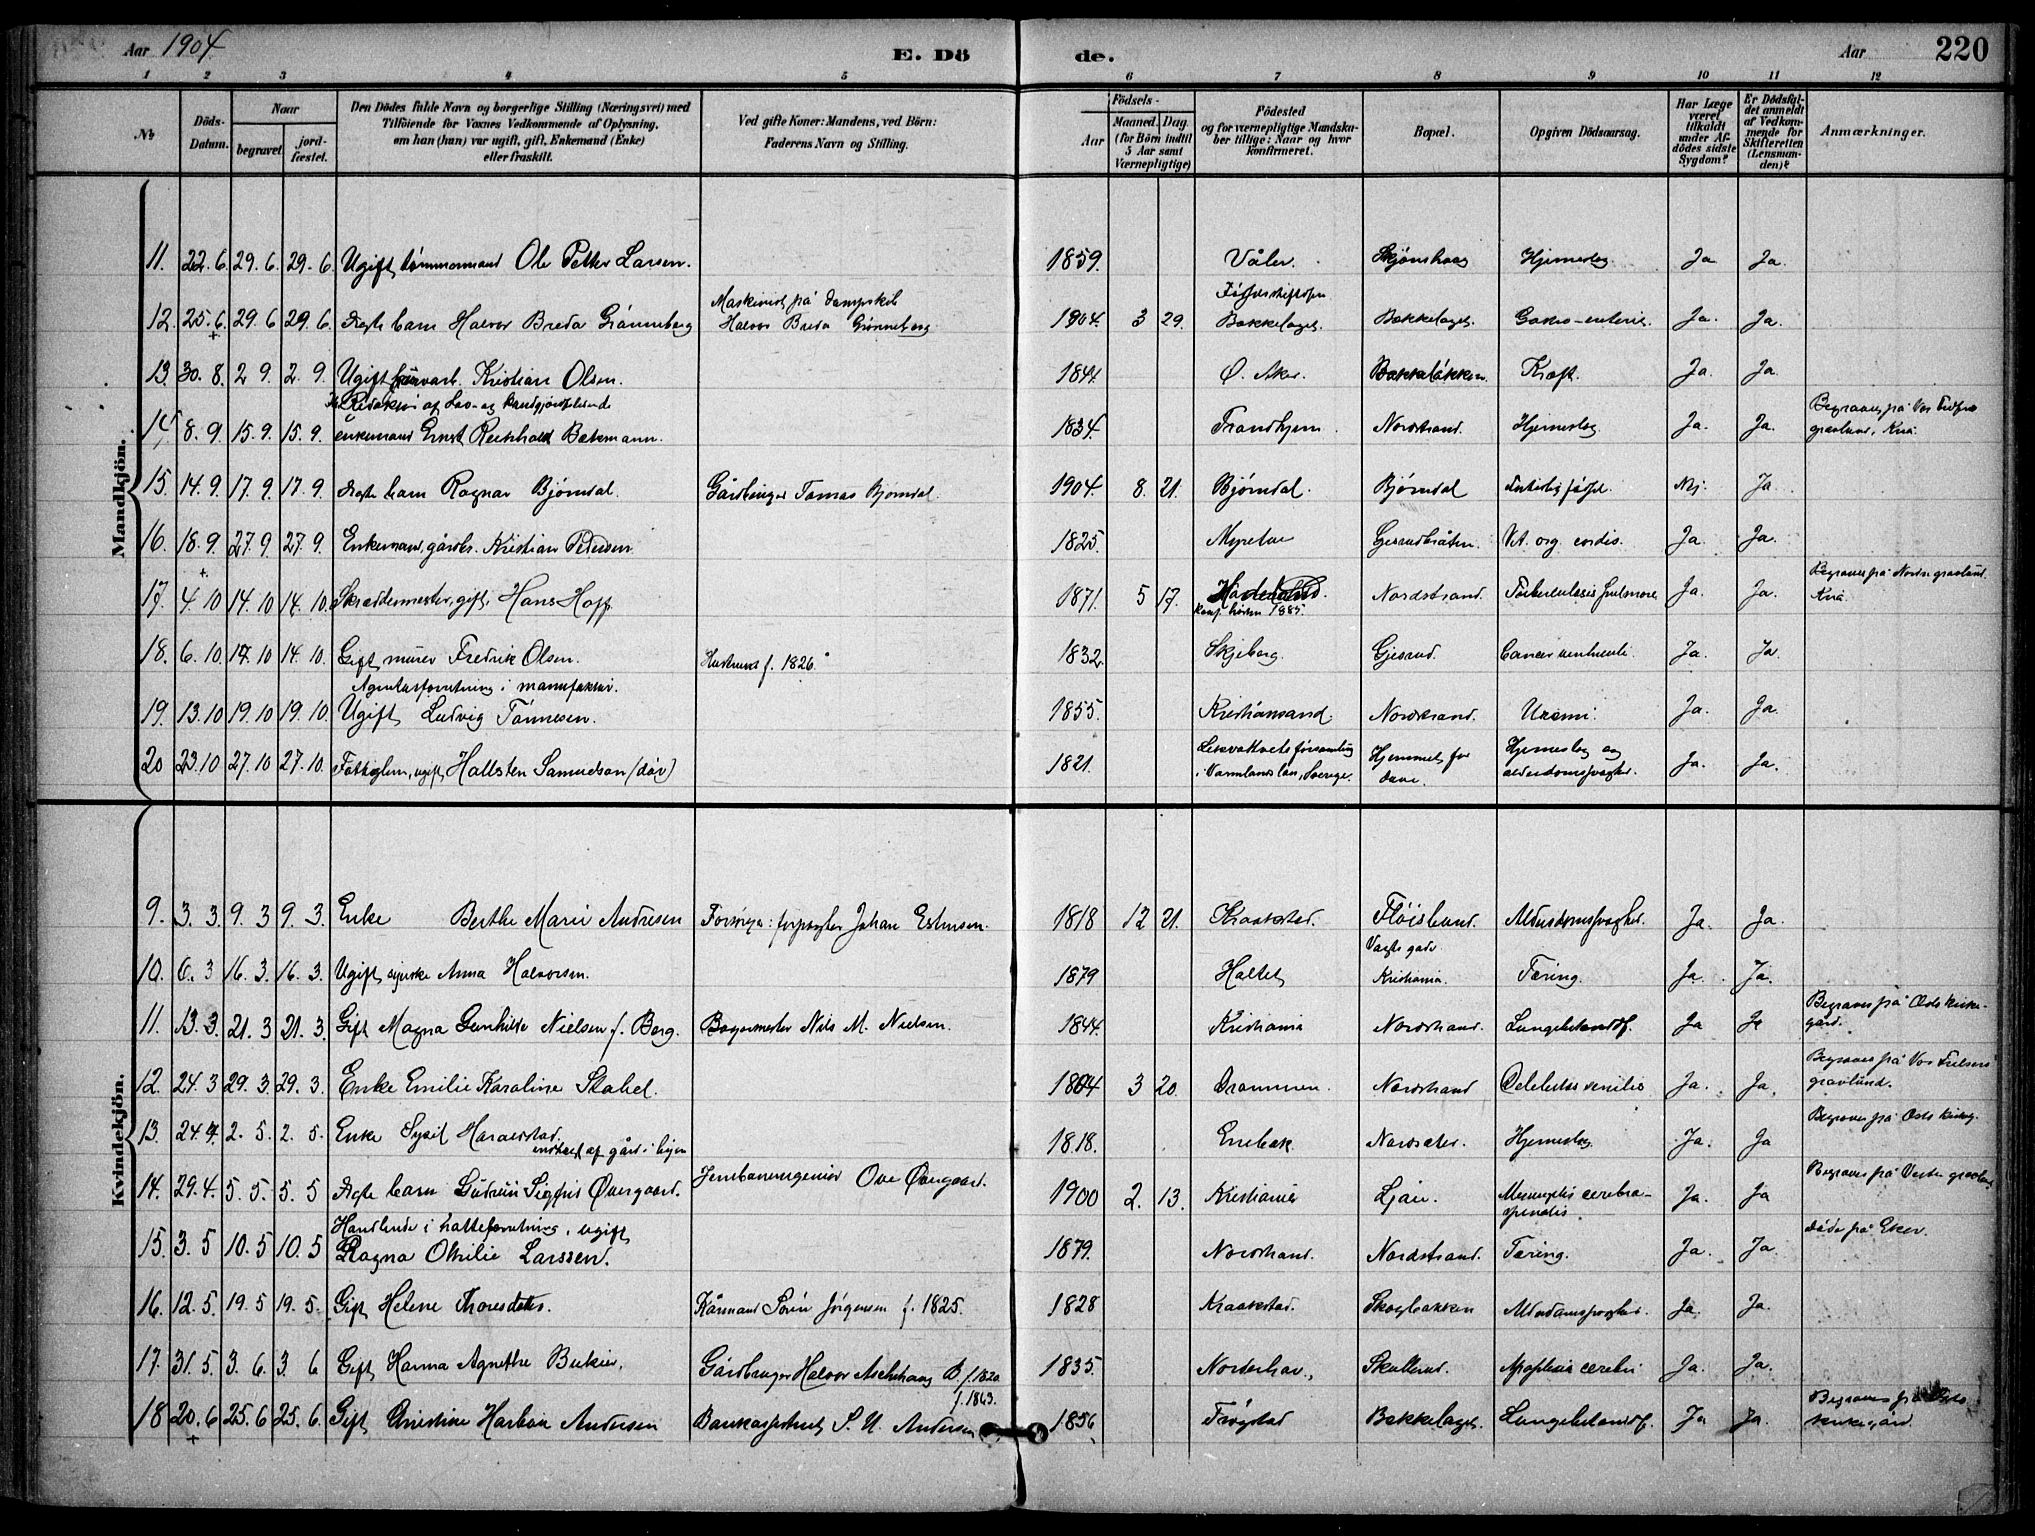 Aar 1904
E. Dö
de.
Aar
220
1 2 3 4 5 6 7 8 9 10 11 12
No
Döds-Datum.
Naar
begravet
jord-fæstet.
Den Dödes fulde Navn og borgerlige Stilling (Næringsvei) med
Tilföiende for Voxnes Vedkommende af Oplysning,
om han (hun) var ugift, gift, Enkemand (Enke)
eller fraskilt.
Ved gifte Koner: Mandens, ved Börn:
Faderens Navn og Stilling.
Födsels-
Aar
Maaned. Dag.
(for Börn indtil
5 Aar samt
Værnepligtige)
Födested
og for værnepligtige Mandska-
ber tillige: Naar og hvor
konfirmeret.
Bopæl.
Opgiven Dödsaarsag.
Har Læge
været
tilkaldt
under Af-
dödes sidste
Sygdom?
Er Dödsfal-
det anmeldt
af Vedkom-
mende for
Skifteretten
(Lensman-
den)?
Anmærkninger.
Mandkjön.
11. 22. 6. 29. 6. 29. 6. Ugift tømmermand Ole Petter Larsen. 1859. Våler. Skjønhaug Hjerneslag Ja Ja.
Maskinist på dampskib
12. 25. 6. 29. 6 29. 6. Ægte barn Halvor Breda Grønneberg Halvor Breda Grønneberg 1904. 3 29. Fødselsstiftelsen Bækkelaget. Bækkelaget. Gastro-enterit. Ja. Ja.
13. 30. 8. 2 9. 2. 9. Ugift Kristian Olsen. 1844. Ø. Aker. Bakkeløkken. Kræft. Ja. Ja.
Redaktør af Lov- og kundgjørelsestidende
14. 8. 9. 15. 9. 15. 9. enkemand Ernst Reinholdt Bætzmann. 1834. Trondhjem. Nordstrand. Hjerneslag Ja. Ja. Begraves på Vor Frelsers gravlund, Kria.
15. 14. 9. 17. 9. 17. 9. Ægte barn Ragnar Bjørndal. Gårdbruger Tomas Bjørndal. 1904. 8. 21. Bjørndal. Bjørndal Nej. Ja.
16. 18. 9. 27. 9. 27. 9. Enkemand, gårdbr. Kristian Pedersen 1825. Gjersrudbråten. Vit. org. cordis. Ja Ja.
17. 4. 10 14. 10 14. 10. Skræddermester, gift, Hans Hoff. 1871. 5 17. Hadeland. konf. høsten 1885. Nordstrand. Tuberculosis pulmon. Ja. Ja. Begraves på Nordre gravlund. Kria.
18. 6. 10. 14. 10 14. 10. Gift murer Fredrik Olsen. Hustruens f. 1826. 1832. Skjeberg. Gjersrud. Cancer ventriculi. Ja. Ja
Agenturforretning i manufaktur.
19. 13. 10 19. 10 19. 10. Ugift Ludvig Tønnesen. 1855. Kristiansand. Nordstrand. Uræmi. Ja. Ja.
20 23. 10 27. 10 27. 10. Fattiglem, ugift, Hallsten Samuelson (døv) 1821. Lekvattnets församling i Varmlands län, Sverige. Hjemmet for døve. Hjerneslag og alderdomssvaghed. Ja. Ja.
Kvindekjön.
9. 3. 3. 9. 3 9. 3. Enke Berthe Marie Andresen Forsørger: forpagter Johan Estensen. 1818 12 21. Kraakstad. Fløislund. Alderdomssvaghed. Ja. Ja.
10. 6. 3 16. 3. 16. 3. Ugift syerske Anna Halvorsen. 1879 Holtet Vogts gade Kristiania. Tæring. Ja. Ja.
11. 13. 3. 21. 3 21. 3. Gift Magna Gunhilde Nielsen f. Berg. Bagermester Nils M. Nielsen. 1844. Kristiania Nordstrand. Lungebetændelse. Ja Ja Begraves på Østre kirke-
gård.
12. 24. 3 29. 3. 29. 3. Enke Emilie Karoline Stabel. 1804 3 20. Drammen. Nordstrand Debilitas senilis Ja. Ja. Begraves på Vor Frelsers
gravlund.
13. 24. 4. 2. 5. 2. 5. Enke Sysil Haraldstad. indehaver af gård i byen 1818. Enebak. Nordsæter. Hjerneslag Ja. Ja Begraves på Østre kirkeg.
14. 29. 4. 5. 5. 5. 5 Ægte barn Gudrun Sigfrid Øvergaard. Jernbaneingeniør Ove Øvergaard. 1900 2. 13. Kristiania Ljan. Meningitis cerebro-
spinalis Ja. Ja Begraves på Vestre gravlund.
Handlende i hatteforretning, ugift
15. 3. 5 10. 5 10. 5 Ragna Othilie Larssen. 1879. Nordstrand. Nordstrand. Tæring. Ja. Ja. døde på Eker.
16. 12. 5. 19. 5 19. 5. Gift Helene Thoresdatter. Kårmand Sørin Jørgensen f. 1825. 1828 Kraakstad. Skogbakken Alderdomssvaghed. Ja. Ja.
17. 31. 5. 3. 6. 3. 6 Gift Hanna Agnethe Bukier. Gårdbruger Halvor Aschehoug B. f. 1820. 1835. Norderhov. Skullerud. Apoplexia cerebri Ja. Ja.
18 20. 6 25. 6 25. 6. Gift Christine Andersen Bankassistent S. U. Andersen f. 1863. 1856 Trøgstad Bækkelaget. Lungebetændelse. Ja Ja. Begraves på Østre
kirkegård.